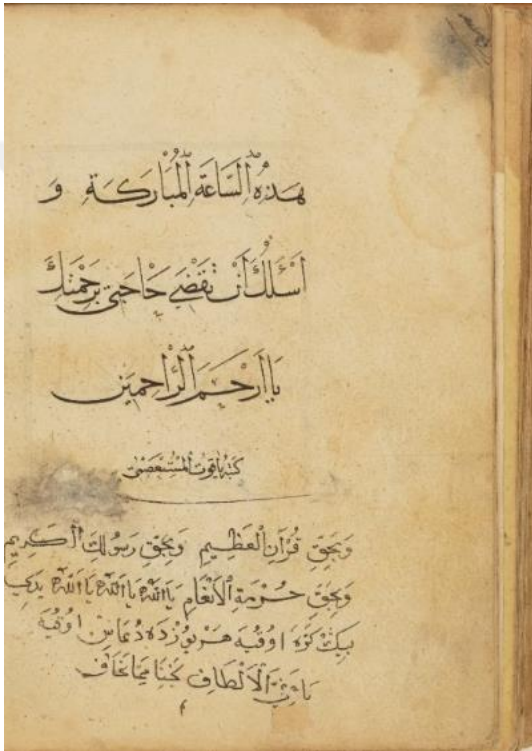 هَذِهِ ٱلسَّاعَةِ ٱلْمُبَارَكَةِ وَ
اَسْئَلُكَ أَنْ تَقْضِيَ حَاجَتِي بِرَحْمَتِكَ
يَا أَرْحَمَ ٱلرَّاحِمِينَ
كتبه ياقوت المستعصمي
وَبِحَقِّ قُرْآنِ الْعَظِيمِ وَبِحَقِّ رَسُولِكَ الْكَرِيمِ
وَبِحَقِّ حُرْمَةِ الْأَنْعَامِ يَا اَللّٰهُ يَا اَللّٰهُ يَا اَللّٰهُ
بيك كره اوقيه هر يوزده دعاسن اوقيه
يَا خَفِيَّ الْاَلْطَافِ نَجِّنَا مِمَّا نَخَافُ